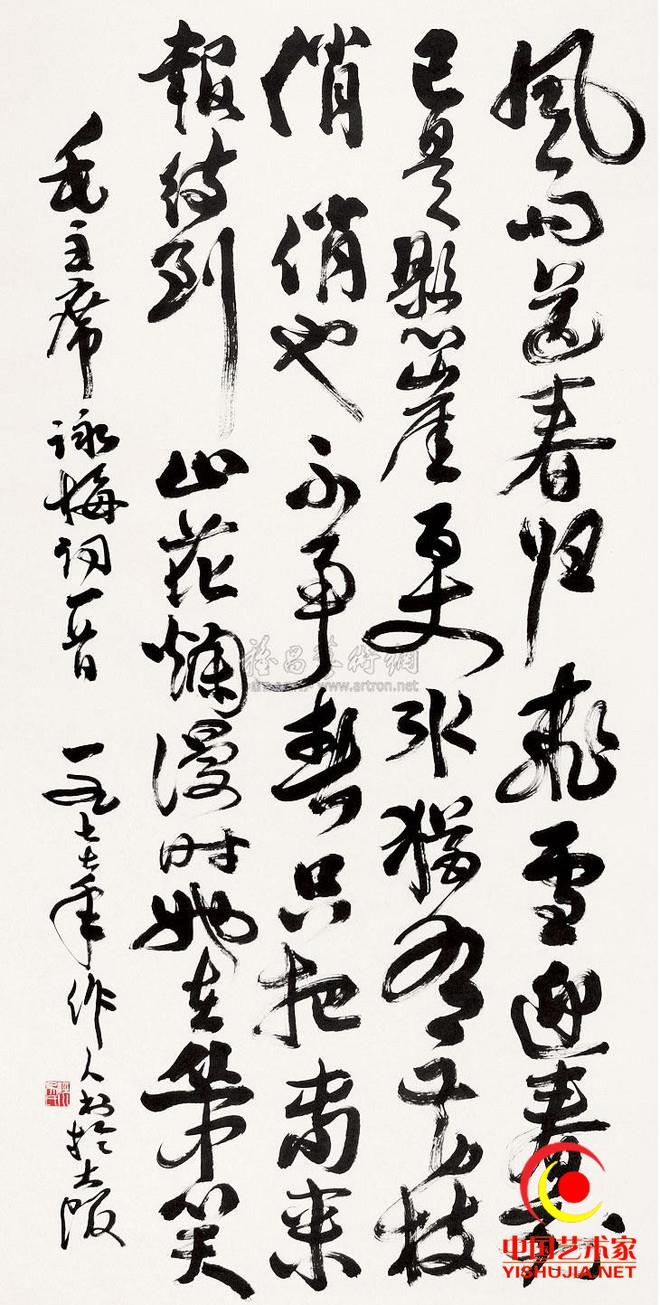 風雨送春归飛雪迎春到
已是懸崖百丈冰猶有花枝
俏 俏也不争春只把春来
報待到山花爛漫时她在丛中笑
毛主席詠梅词一首 一九七七年作人书於大阪
雅昌藝術網
www.artron.net
中国艺术家
YISHUJIA.NET